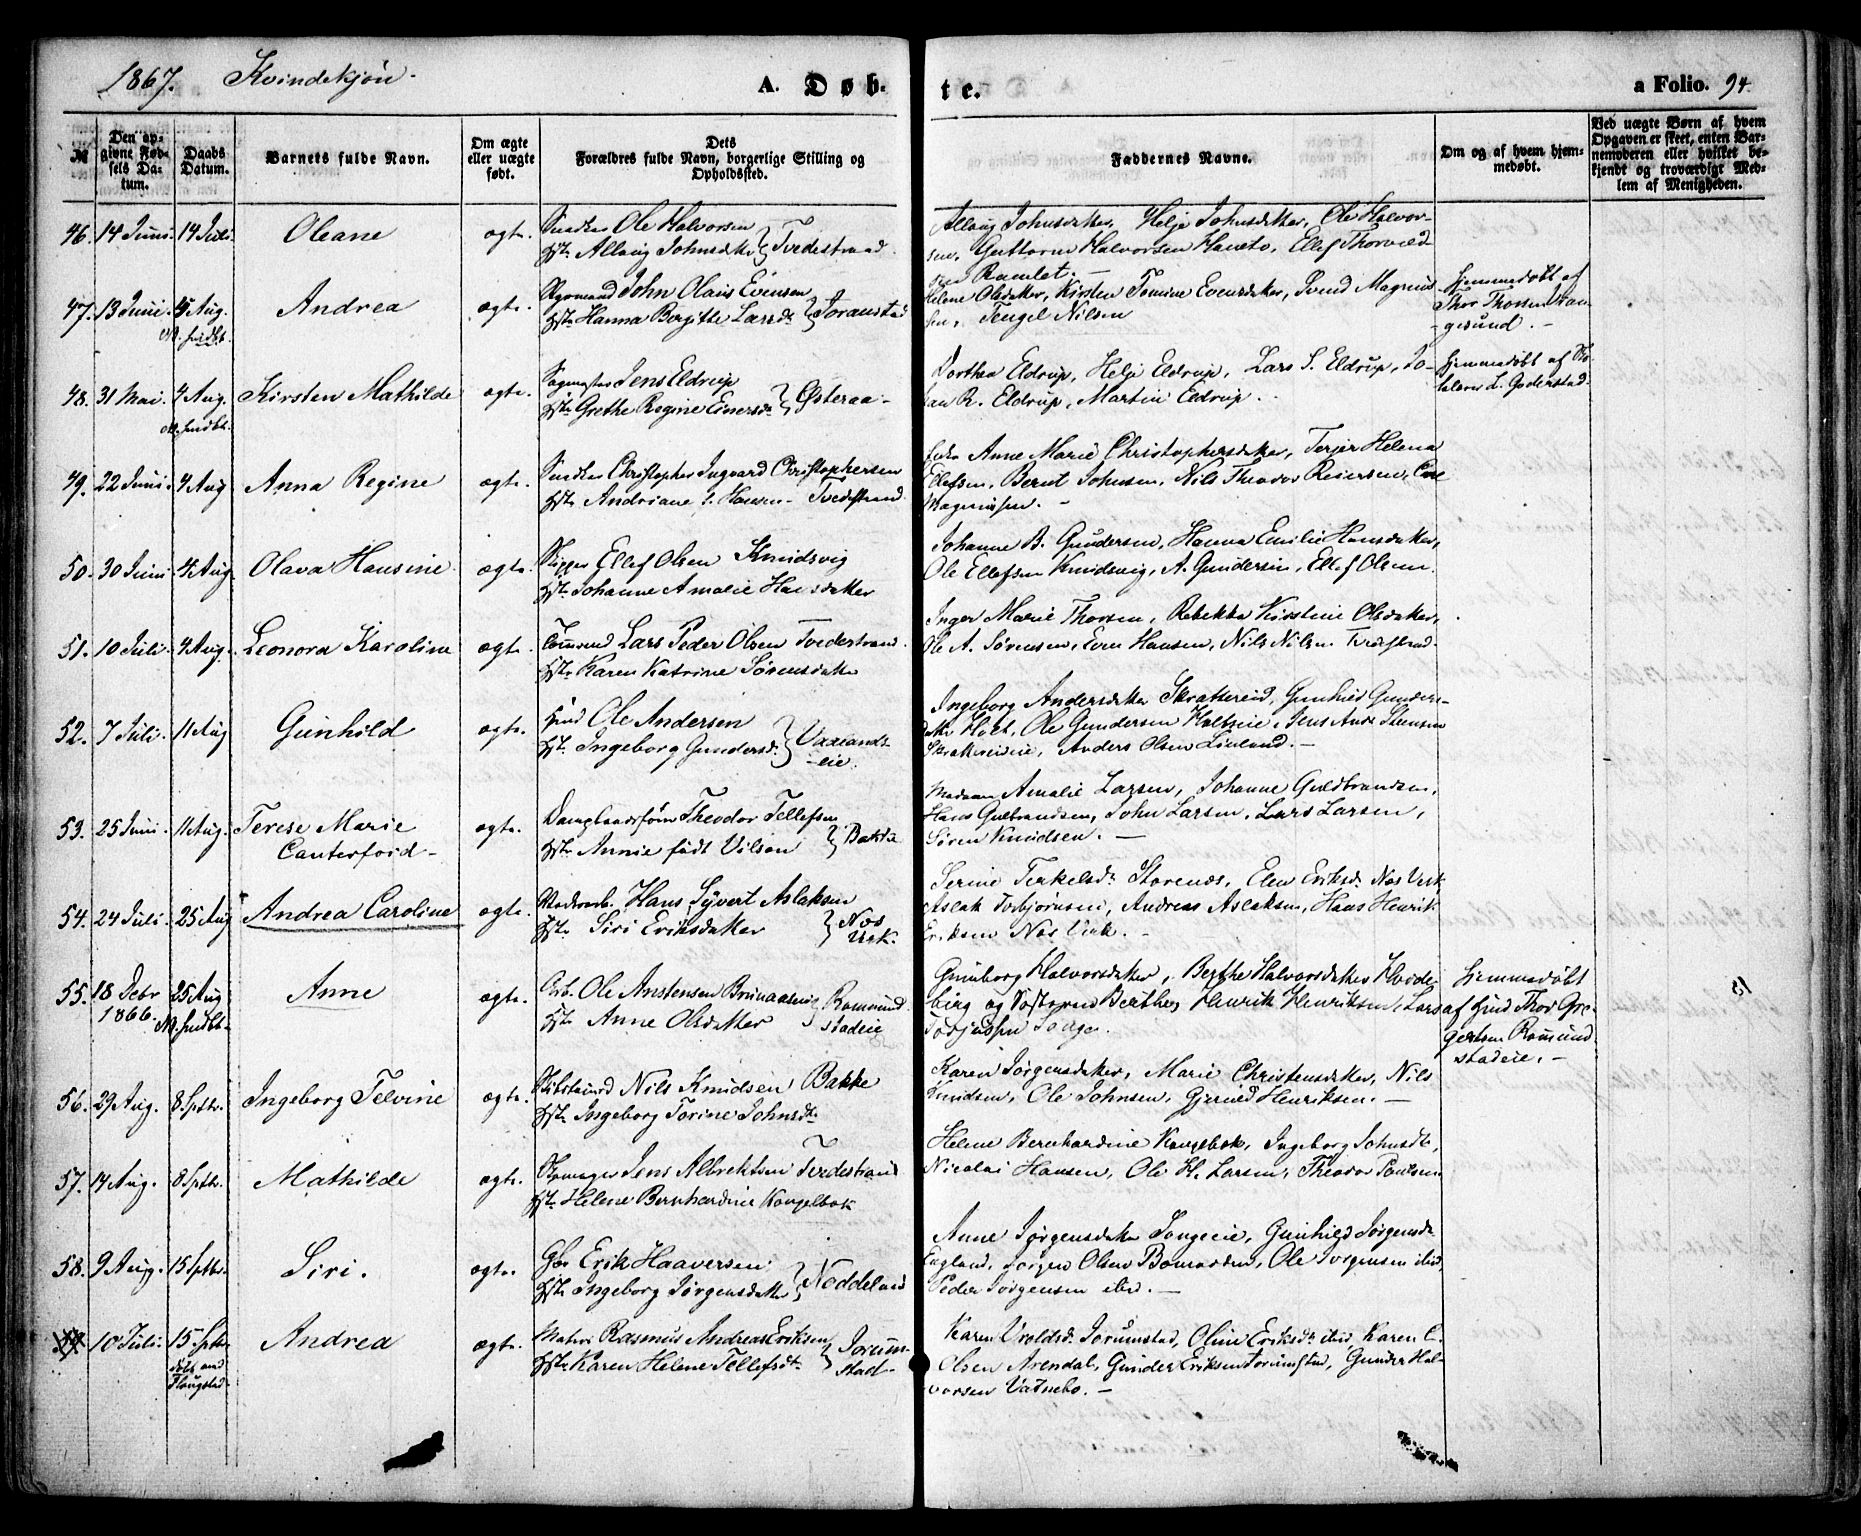 1867. Kvindekjøn. A. Døbte. a Folio. 94.
№
Den opgivne Fødsels Datum.
Daabs Datum.
Barnets fulde Navn.
Om ægte eller uægte født.
Dets Forældres fulde Navn, borgerlige Stilling og Opholdssted.
Faddernes Navne.
Om og af hvem hjemmedøbt.
Ved uægte Børn af hvem Opgaven er skeet, enten Barnemoderen eller hvilket bekjendt og troværdigt Medlem af Menigheden.
46. 14 Juni. 14 Juli Oleane ægte. Ole Halvorsen
Hst. Allaug Johnsdtr } Tvedestrand
Allaug Johnsdatter, Helje Johnsdatter, Ole Halvor-
sen, Guttorm Halvorsen Haneto, Ellef Thorvild
sen Ramlet. —
47. 13 Juni. 4 Aug. Andrea ægte. Styrmand John Olaus Evensen
Hst. Hanna Bergitte Larsdt. } Joranstad
Helene Olsdatter, Kirsten Tomine Evensdatter, Svend Magnus
sen, Tengel Nilsen
Hjemmedøbt af
Thor Thorsen
gesund. —
48. 31 Mai. 4 Aug. Kirsten Mathilde ægte. Jens Eldrup
Hst. Grethe Regine Einersdt } Østeraa -
Dorthea Eldrup, Helje Eldrup, Lars S. Eldrup, Jo-
han R. Eldrup, Martin Eldrup.
Hjemmedøbt af
L. Goderstad.
49. 22 Juni. 4 Aug Anna Regine ægte. Christopher Ingvard Christophersen
Hst. Andriane f. Hansen - Tvedestrand
Anne Marie Christophersdatter, Terjer Helena
Ellefsen, Bernt Johnsen, Nils Theodor Reiersen, Carl
Magnussen. —
50. 30 Juni 4 Aug Olava Hansine ægte. Skipper Ellef Olsen Knudsvig
Hst. Johanne Amalie Hansdatter
Johanne B. Gundersen, Hanna Emilie Hansdatter,
Ole Ellefsen Knudsvig, A. Gundersen, Ellef Olsen.
51. 10 Juli. 4 Aug. Leonora Karoline ægte. Lars Peder Olsen Tvedestrand.
Hst. Karen Katrine Sørensdatter
Inger Marie Thorsen, Rebekka Kirstine Olsdatter,
Ole A. Sørensen, Even Hansen, Nils Nilsen Tvedestrand.
52. 7 Juli. 11 Aug Gunhild ægte. Hmd Ole Andersen
Hst. Ingeborg Gundersd. } Vaxlands
-eie.
Ingeborg Andersdatter Skrattereid, Gunhild Gunders-
datter Holt, Ole Gundersen Holtseie, Jens And.
Anders Olsen Lunland. —
53. 25 Juni 11 Aug. Terese Marie ægte. Theodor Tellefsen
Canterford -
Hst. Annie født Vilson } Bakkeie
Madam Amalie Larsen, Johanne Guldbrandsen,
Hans Gulbrandsen, John Larsen, Lars Larsen,
Søren Knudsen. —
54. 24 Juli. 25 Aug Andrea Caroline ægte. Hans Syvert Aslaksen
Hst. Siri Eriksdatter } Næs
Verk.
Serine Terkelsdt. Storenæs, Elen Eriksd. Næs Verk
Aslak Torbjørnsen, Andreas Aslaksen, Hans Henrik
Eriksen Næs Verk. —
55. 18 Debr 25 Aug Anne ægte. Arb. Ole Anstensen
1866.
Hst. Anne Olsdatter } Romund
stadeie
Gunborg Halvorsdatter, Berthe Halvorsdatter
Berthe, Henrik Henriksen, Lars
Hjemmedøbt
af Hmd Thor Gre-
gertsen Romund
stadeie. —
56. 29 Aug. 8 Septbr. Ingeborg Telvine ægte. Nils Knudsen Bakke
Hst. Ingeborg Torine Johnsdt.
Karen Jørgensdatter, Marie Christensdatter, Nils
Knudsen, Ole Johnsen, Gjeruld Henriksen. —
57. 14 Aug. 8 Septbr. Mathilde ægte. Jens Albrektsen Tvedestrand
Hst. Helene Bernhardine Kongelbæk
Helene Bernhardine Kongelbæk, Ingeborg Johnsdt,
Nicolai Hansen, Ole H. Larsen, Theodor Paulsen
58. 9 Aug. 15 Septbr. Siri. ægte. Gbr. Erik Haaversen
Hst. Ingeborg Jørgensdatter } Noddeland
Anne Jørgensdatter Songeeie, Gunhild Jørgensdt
Jørgen Olsen, Ole Jørgensen ibid,
Peder Jørgensen ibid. —
10 Juli. 15 Septbr Andrea ægte. Matros Rasmus Andreas Eriksen
Hst. Karen Helene Tellefsdt. } Jorum-
stad -
døbt ved
Flaugstad
Karen Uroldsd. Jorumstad, Oline Eriksdt. ibid, Karen C.
Olsen Arendal, Gunder Eriksen Jorumstad, Gunder Hal-
vorsen Vatnebo. —